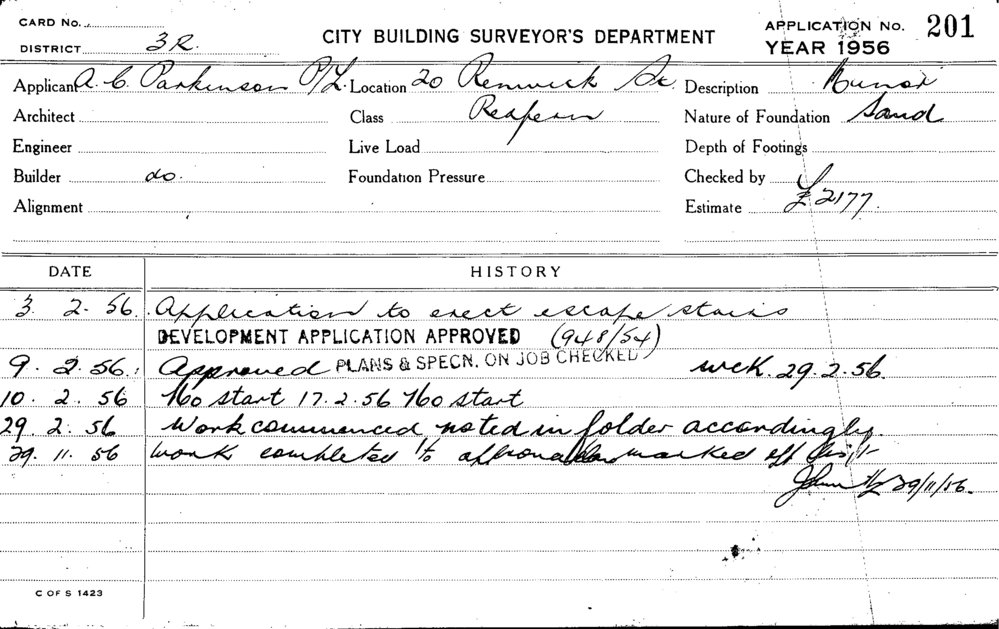 CARD No.
DISTRICT 3R.
CITY BUILDING SURVEYOR'S DEPARTMENT
APPLICATION No. 201
YEAR 1956
Applicant A. C. Parkinson P/L. Location 20 Renwick St. Description Minor
Architect Class Redfern Nature of Foundation Sand
Engineer Live Load Depth of Footings
Builder do. Foundation Pressure Checked by
Alignment Estimate £2177.
DATE HISTORY
3. 2. 56. Application to erect escape stairs
DEVELOPMENT APPLICATION APPROVED (948/54)
9. 2. 56. Approved PLANS & SPECN. ON JOB CHECKED wck. 29.2.56.
10. 2. 56 No start 17.2.56 No start
29. 2. 56 Work commenced noted in folder accordingly.
29. 11. 56 Work completed to approval marked off
29/11/56.
C OF S 1423